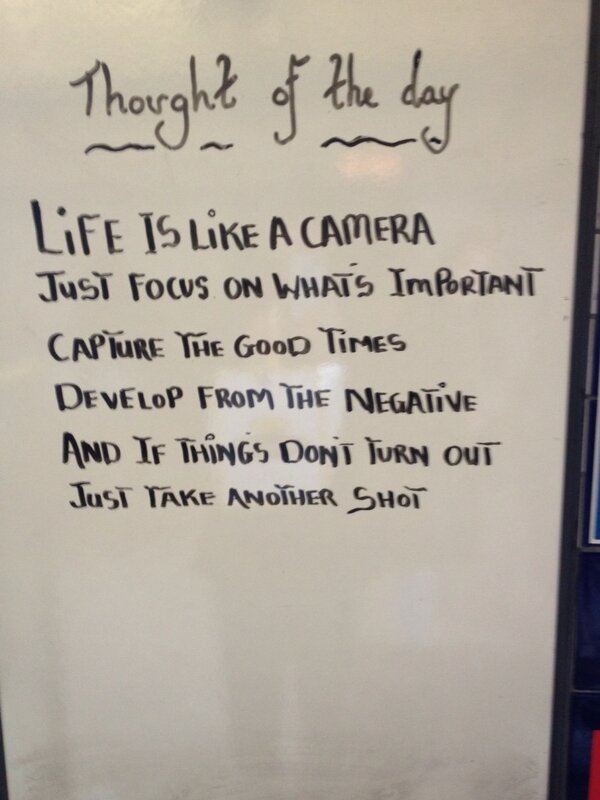 Thought of the day
LiFE IS LiKE A CAMERA
JUST FOCUS ON WHAT'S IMPORTANT
CAPTURE THE GOOD TiMES
DEVELOP FROM THE NEGATiVE
AND IF THiNGS DON'T TURN OUT
JUST TAKE ANOTHER SHOT